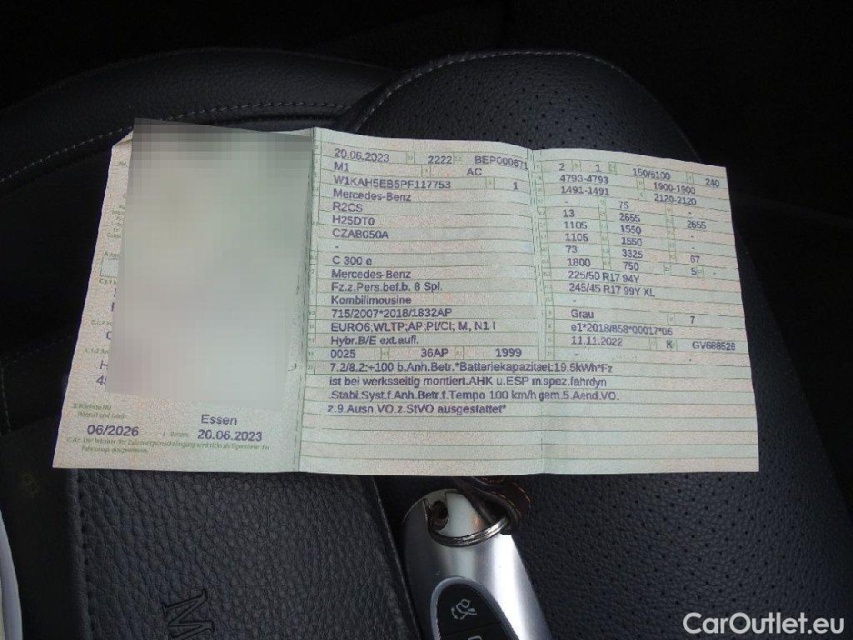 20.06.2023 2222 BEP000871
M1 AC
W1KAH5EB5PF117753 1
Mercedes-Benz
R2CS
H25DT0
CZABG50A
-
C 300 e
Mercedes-Benz
Fz.z.Pers.bef.b. 8 Spl.
Kombilimousine
715/2007*2018/1832AP
EURO6;WLTP;AP;PI/CI; M, N1 I
Hybr.B/E ext.aufl.
0025 36AP 1999
2 1 150/6100 240
4793-4793 1900-1900
1491-1491 2120-2120
- 75 -
13 2655 2655
1105 1550
1105 1550
73 3325 67
1800 750 5 -
225/50 R17 94Y
245/45 R17 99Y XL
-
Grau 7
e1*2018/858*00017*06
11.11.2022 K GV688528
7.2/8.2:+100 b.Anh.Betr.*Batteriekapazitaet:19.5kWh*Fz
ist bei werksseitig montiert.AHK u.ESP m.spez.fahrdyn
Stabl.Syst.f.Anh.Betr.f.Tempo 100 km/h gem.5.Aend.VO.
z.9.Ausn VO.z.StVO ausgestattet*
Essen
06/2026 20.06.2023
CarOutlet.eu